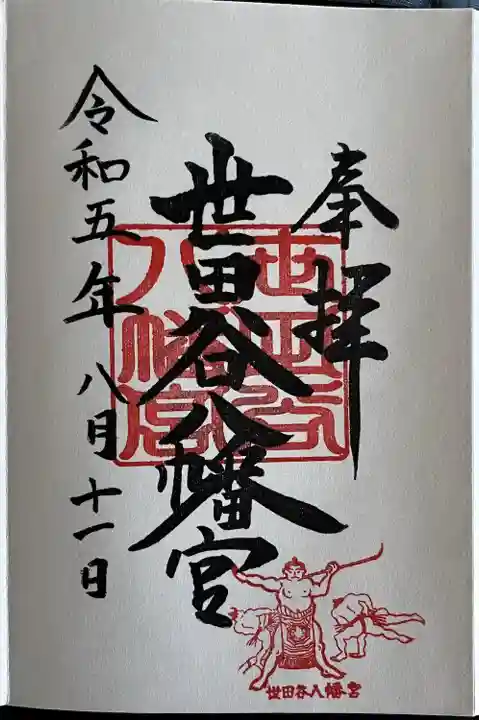 奉拝
世田谷八幡宮
令和五年八月十一日
世田谷
八幡宮
世田谷八幡宮